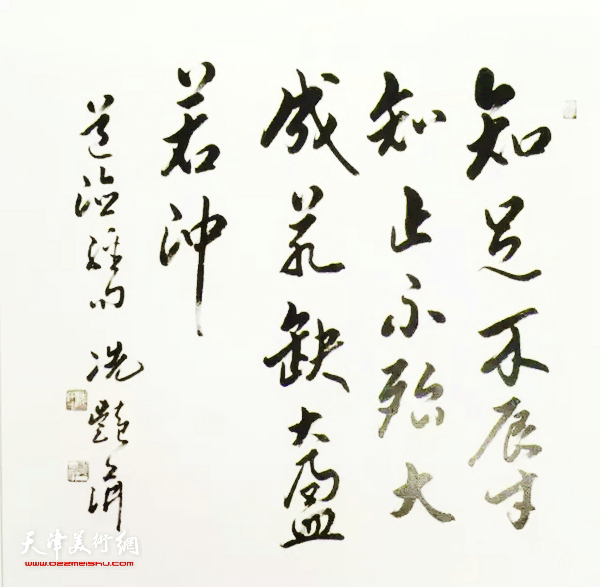 知足不辱
知止不殆大
成若缺大盈
若冲
道德经句 冼艳萍
天津美術網
www.022meishu.com